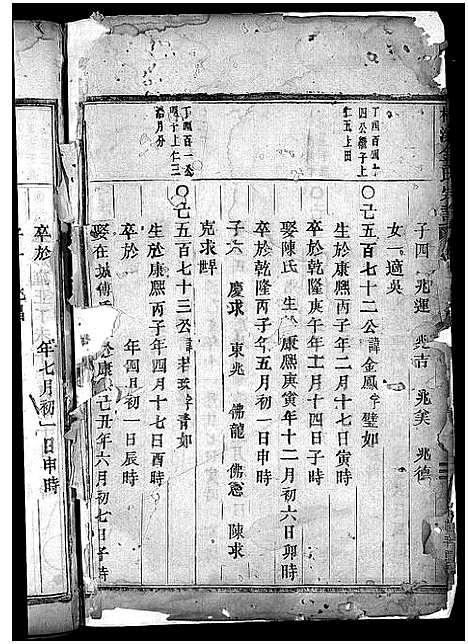 子四 兆運 兆吉 兆美 兆德
女一適吳
丁四百四十
四公繼子上
仁五上田
〇己五百七十二公諱金鳳字璧如
生於康熙丙子年二月十七日寅時
卒於乾隆庚午年十一月十四日子時
娶陳氏 生於康熙庚寅年十二月初六日卯時
卒於乾隆丙子年五月初一日申時
子六 慶求 東兆 佛龍 佛 陳求
克求
丁四百一公
子上仁三
〇己五百七十三公諱若 字青如
生於康熙丙子年四月十七日酉時
卒於 年四月初一日辰時
娶在城傅氏 於康 己丑年六月初七日子時
卒於 年七月初一日申時